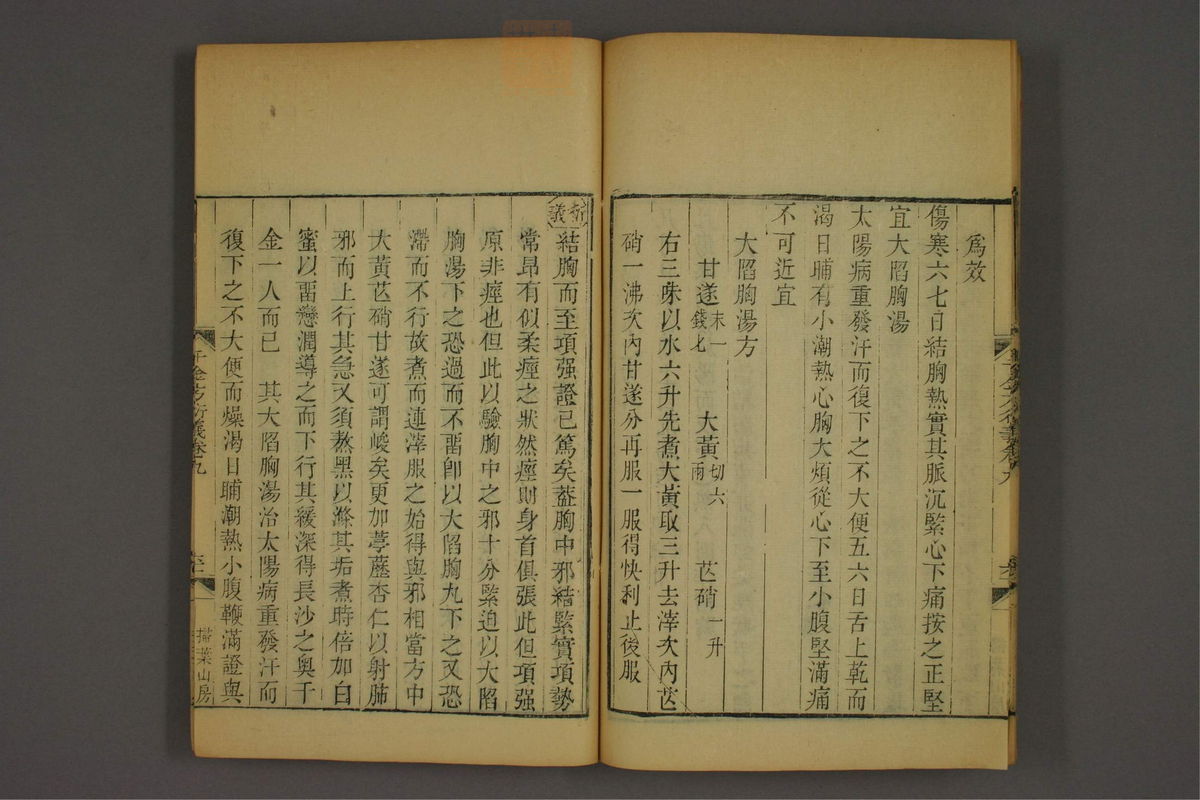 爲效
傷寒六七日結胸熱實其脈沉緊心下痛按之正堅
宜大陷胸湯
太陽病重發汗而復下之不大便五六日舌上乾而
渴日晡有小潮熱心胸大煩從心下至小腹堅滿痛
不可近宜
大陷胸湯方
甘遂末一錢匕 大黃切六兩 芒硝一升
右三味以水六升先煮大黃取三升去滓次內芒
硝一沸次內甘遂分再服一服得快利止後服
衍義結胸而至項强證已篤矣葢胸中邪結緊實項勢
常昂有似柔痙之狀然痙則身首俱張此但項强
原非痙也但此以驗胸中之邪十分緊迫以大陷
胸湯下之恐過而不畱卽以大陷胸丸下之又恐
滯而不行故煮而連滓服之始得與邪相當方中
大黃芒硝甘遂可謂峻矣更加葶藶杏仁以射肺
邪而上行其急又須熬黑以滌其垢煮時倍加白
蜜以畱戀潤導之而下行其緩深得長沙之奥千
金一人而已 其大陷胸湯治太陽病重發汗而
復下之不大便而燥渴日晡潮熱小腹鞕滿證與
千金方衍義卷九
掃葉山房